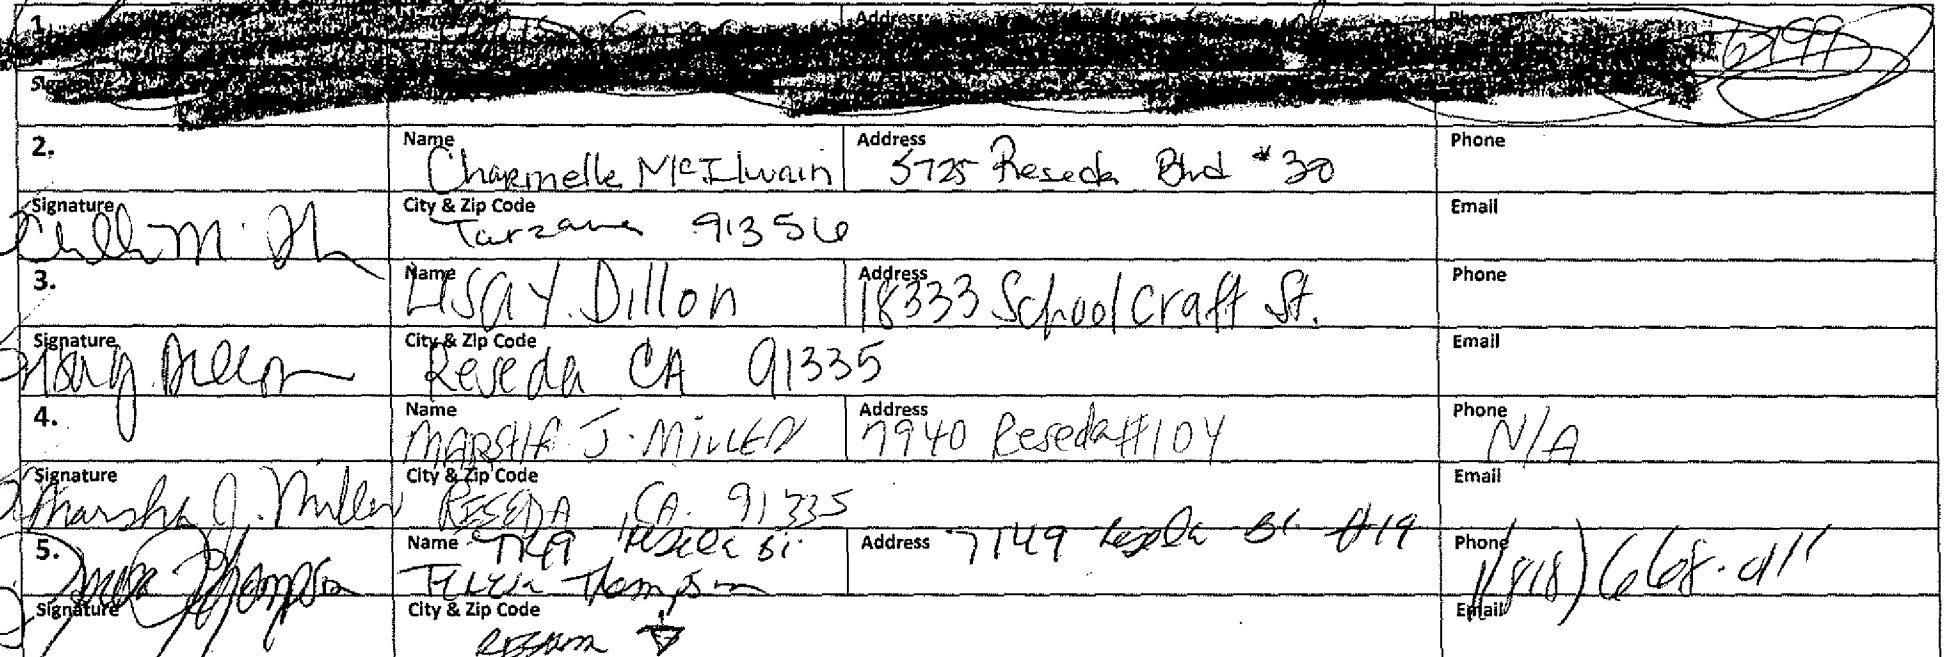 1. Address Phone
6299
2. Name Charmelle McIlwain Address 5725 Reseda Blvd #30 Phone
Signature City & Zip Code Tarzana 91356 Email
3. Name Lisa Y. Dillon Address 18333 Schoolcraft St. Phone
Signature Lisa Y Dillon City & Zip Code Reseda CA 91335 Email
4. Name MARSHA J. MILLER Address 7940 Reseda #104 Phone N/A
Signature Marsha J. Miller City & Zip Code RESEDA CA. 91335 Email
5. Name 7149 Reseda Bl Address 7149 Reseda Bl #19 Phone
Thompson Thompson (818) 668-
Signature City & Zip Code Email